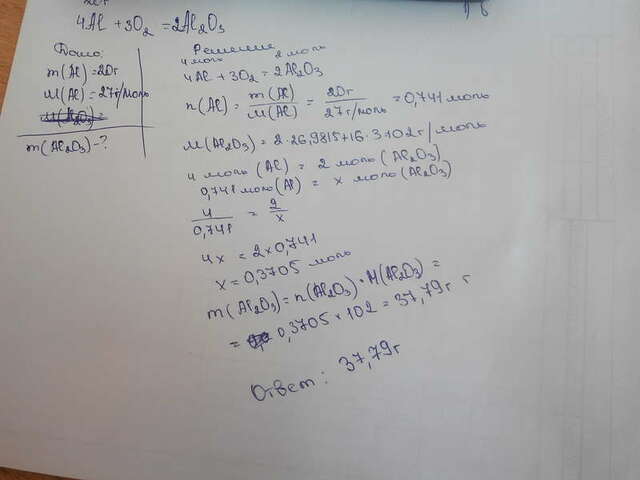 4Al + 3O₂ = 2Al₂O₃
Дано:
m(Al) = 20г
M(Al) = 27 г/моль
m(Al₂O₃) - ?
Решение
4 моль 2 моль
4Al + 3O₂ = 2Al₂O₃
n(Al) = m(Al)/M(Al) = 20г/27 г/моль = 0,741 моль
M(Al₂O₃) = 2·26,9815+16·3=102 г/моль
4 моль (Al) = 2 моль (Al₂O₃)
0,741 моль (Al) = x моль (Al₂O₃)
4/0,741 = 2/x
4x = 2×0,741
x = 0,3705 моль
m(Al₂O₃) = n(Al₂O₃)·M(Al₂O₃) =
= 0,3705×102 = 37,79г г
Ответ: 37,79г